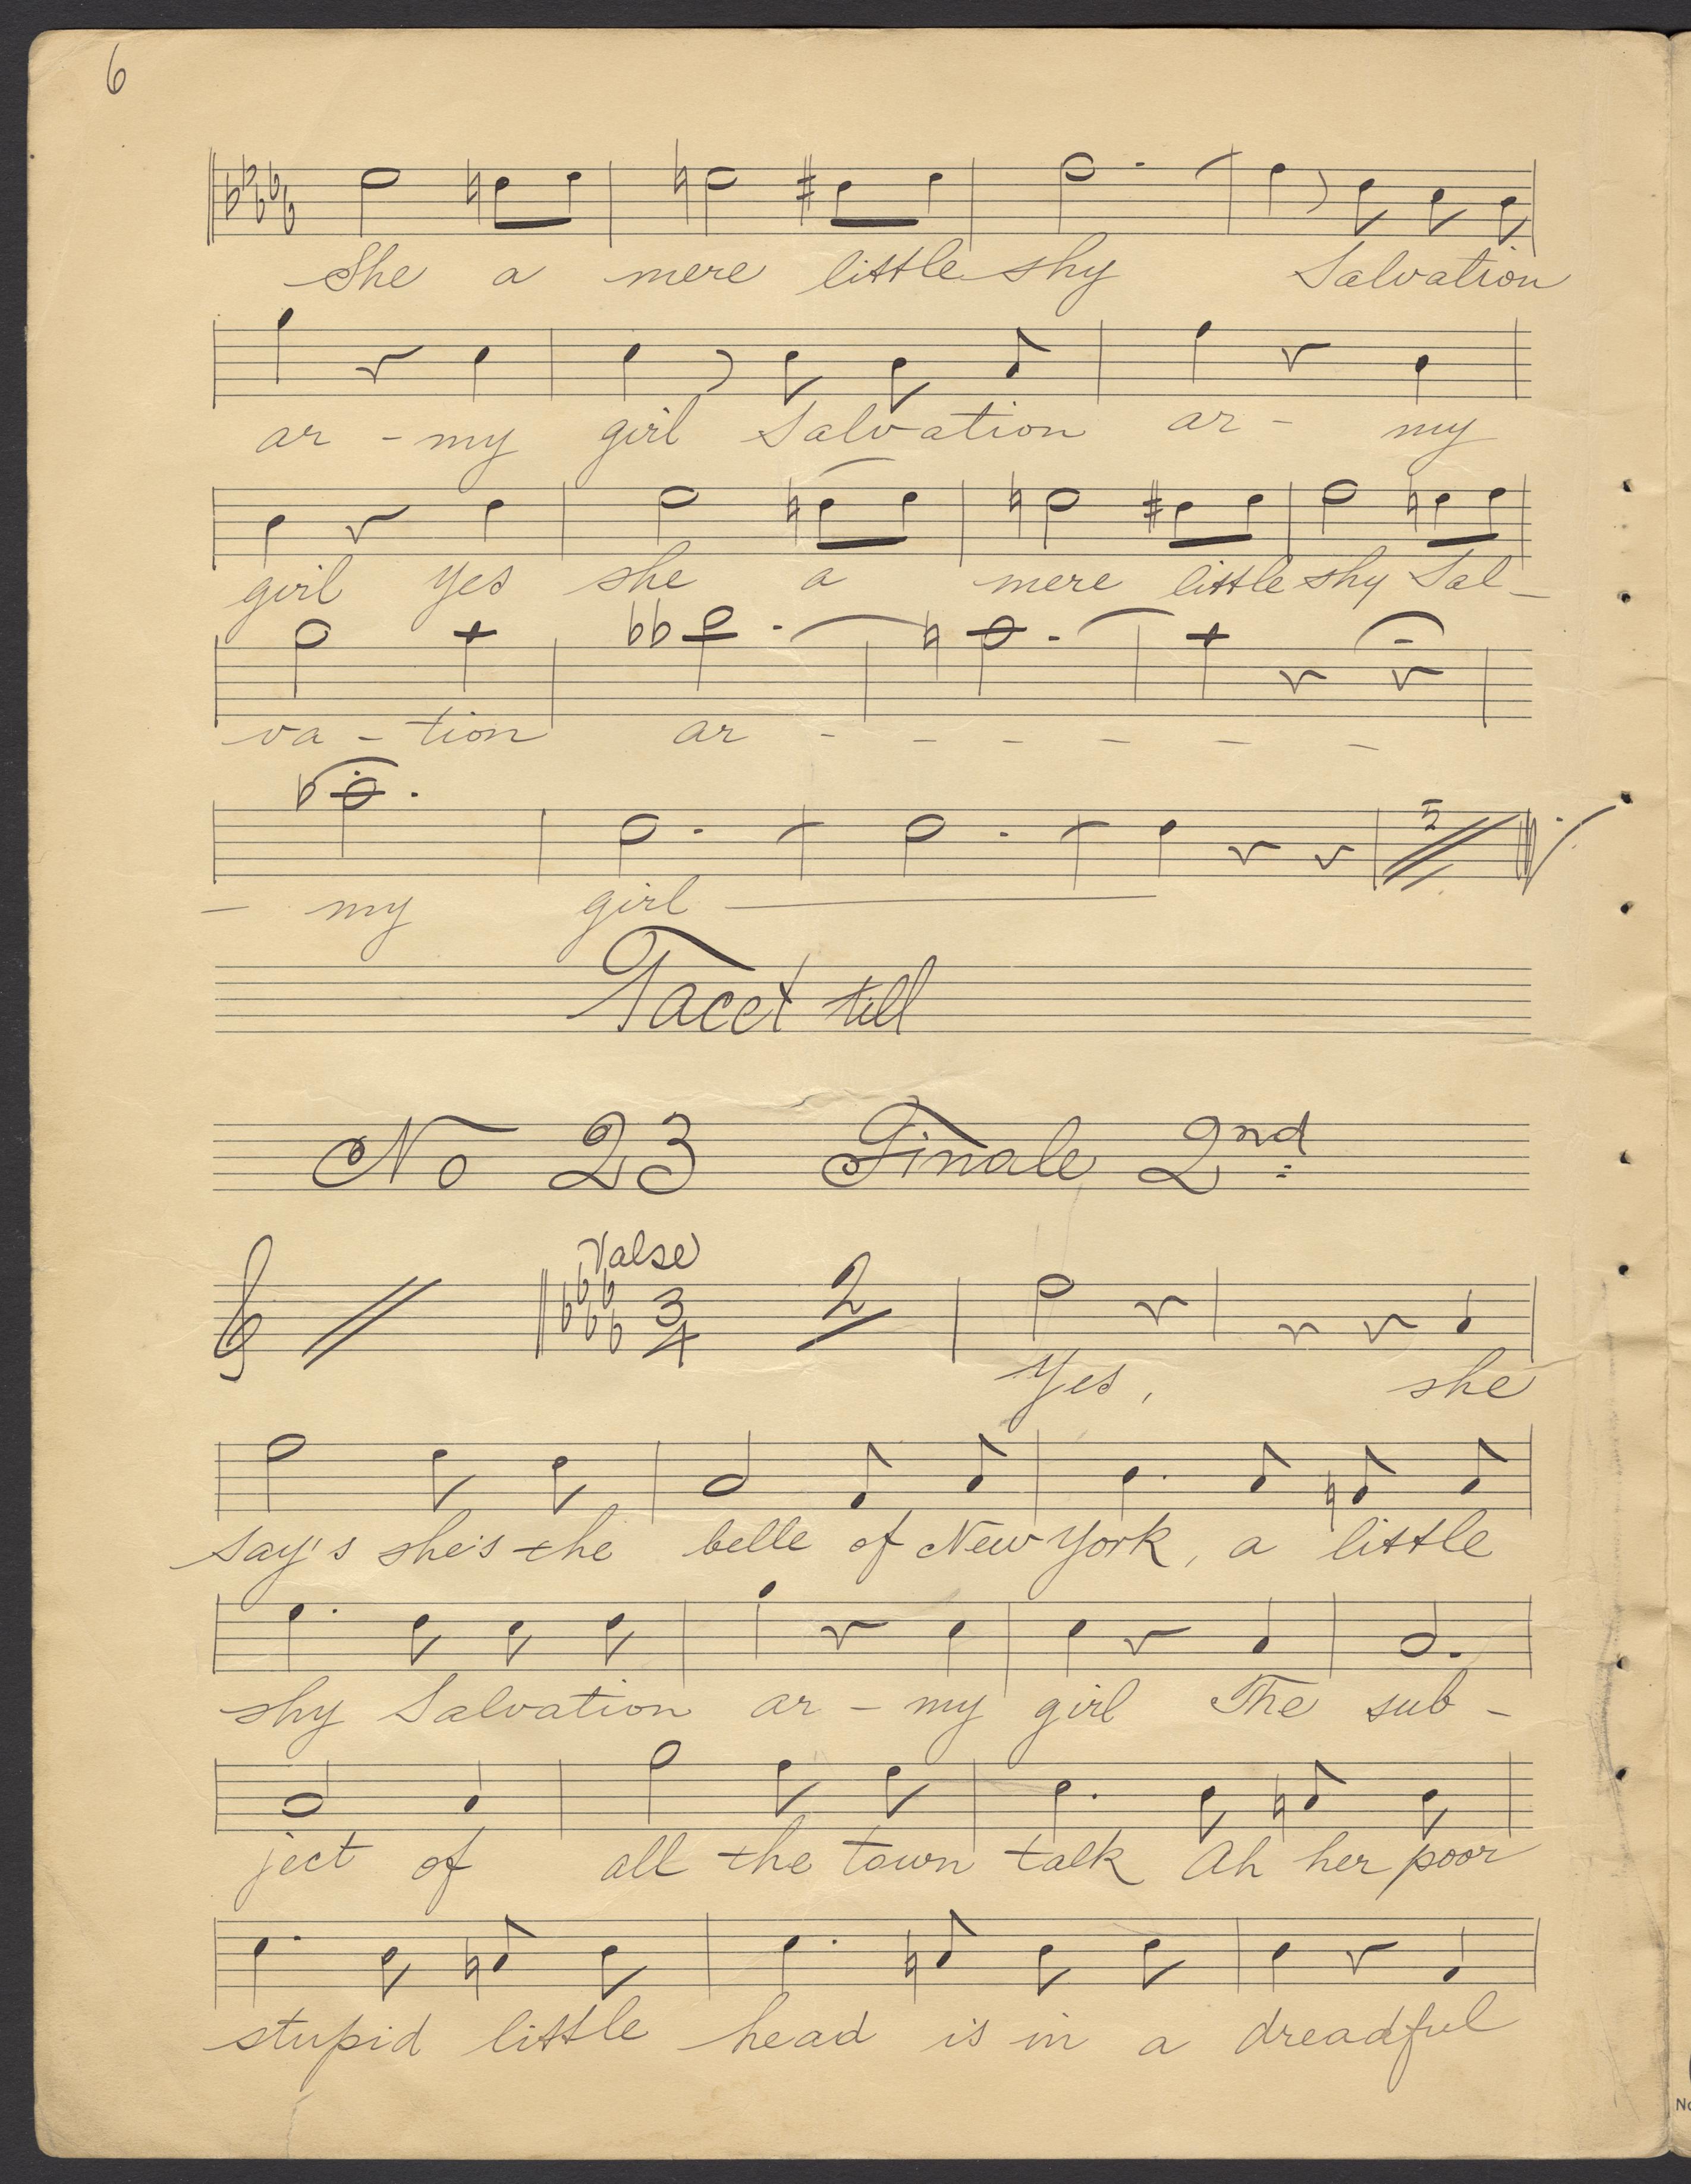 6
She a mere little shy Salvation
ar - my girl Salvation ar - my
girl yes she a mere little shy Sal -
va - tion ar - - - - - -
- my girl
Tacet till
No 23 Finale 2nd
Valse
3/4 2
Yes, she
say's she's the belle of New York, a little
shy Salvation ar - my girl The sub -
ject of all the town talk Ah her poor
stupid little head is in a dreadful